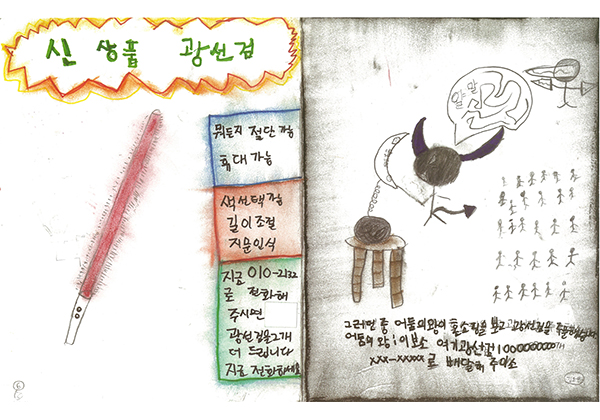 신 상품 광선검
뭐든지 절단 가능
휴대 가능
색선택 가능
길이조절
지문인식
지금 010-2132
로 전화해
주시면
광선검을 2개
더 드립니다
지금 전화하세요
그러던 중 어둠의 왕이 홈쇼핑을 보고 광선검을 주문했습니다
어둠의 왕 : 이보소 여기 광선검 10000000000개
xxx-xxxxx 로 배달해 주이소